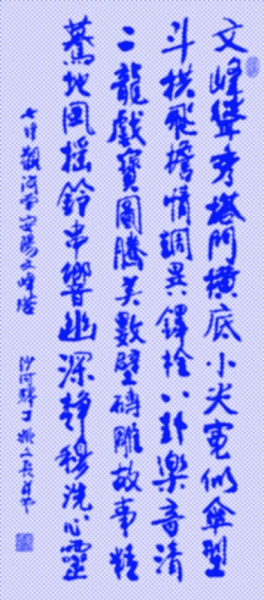 文峰聳秀塔門橫底小尖寬似傘型
斗栱飛檐情調異鐸栓八卦樂音清
二龍戲寶圖騰美數壁磚雕故事精
驀地風搖鈴串響幽深靜穆洗心靈
七律觀河南安陽文峰塔
沙河